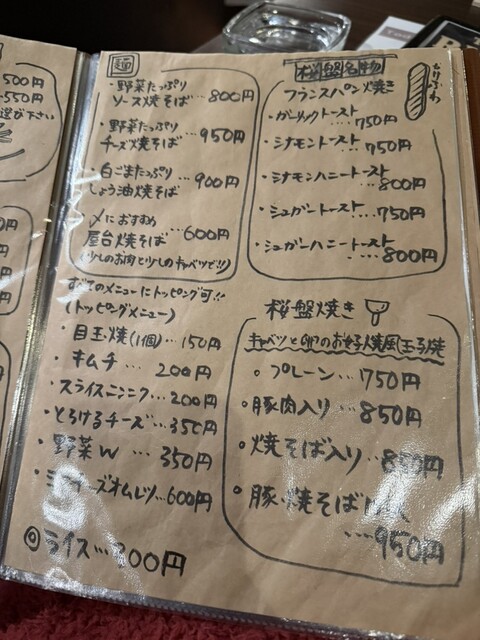 500円
550円
選び下さい
麺
・野菜たっぷり
ソース焼そば…800円
・野菜たっぷり
チーズ焼そば…950円
・白ごまたっぷり
しょう油焼そば…900円
・〆におすすめ
屋台焼そば…600円
(少しのお肉と少しのキャベツで!!)
すべてのメニューにトッピング可!!
(トッピングメニュー)
・目玉焼(1個)…150円
・キムチ…200円
・スライスニンニク…200円
・とろけるチーズ…350円
・野菜W…350円
オムレツ…600円
◎ライス…
桜盤名物
フランスパン焼き
・ガーリックトースト
…750円
・シナモントースト
…750円
・シナモンハニートースト
…800円
・シュガートースト…750円
・シュガーハニートースト
…800円
桜盤焼き
キャベツと卵のお好焼風玉子焼
○プレーン…750円
○豚肉入り…850円
○焼そば入り…850円
○豚・焼そば
…950円